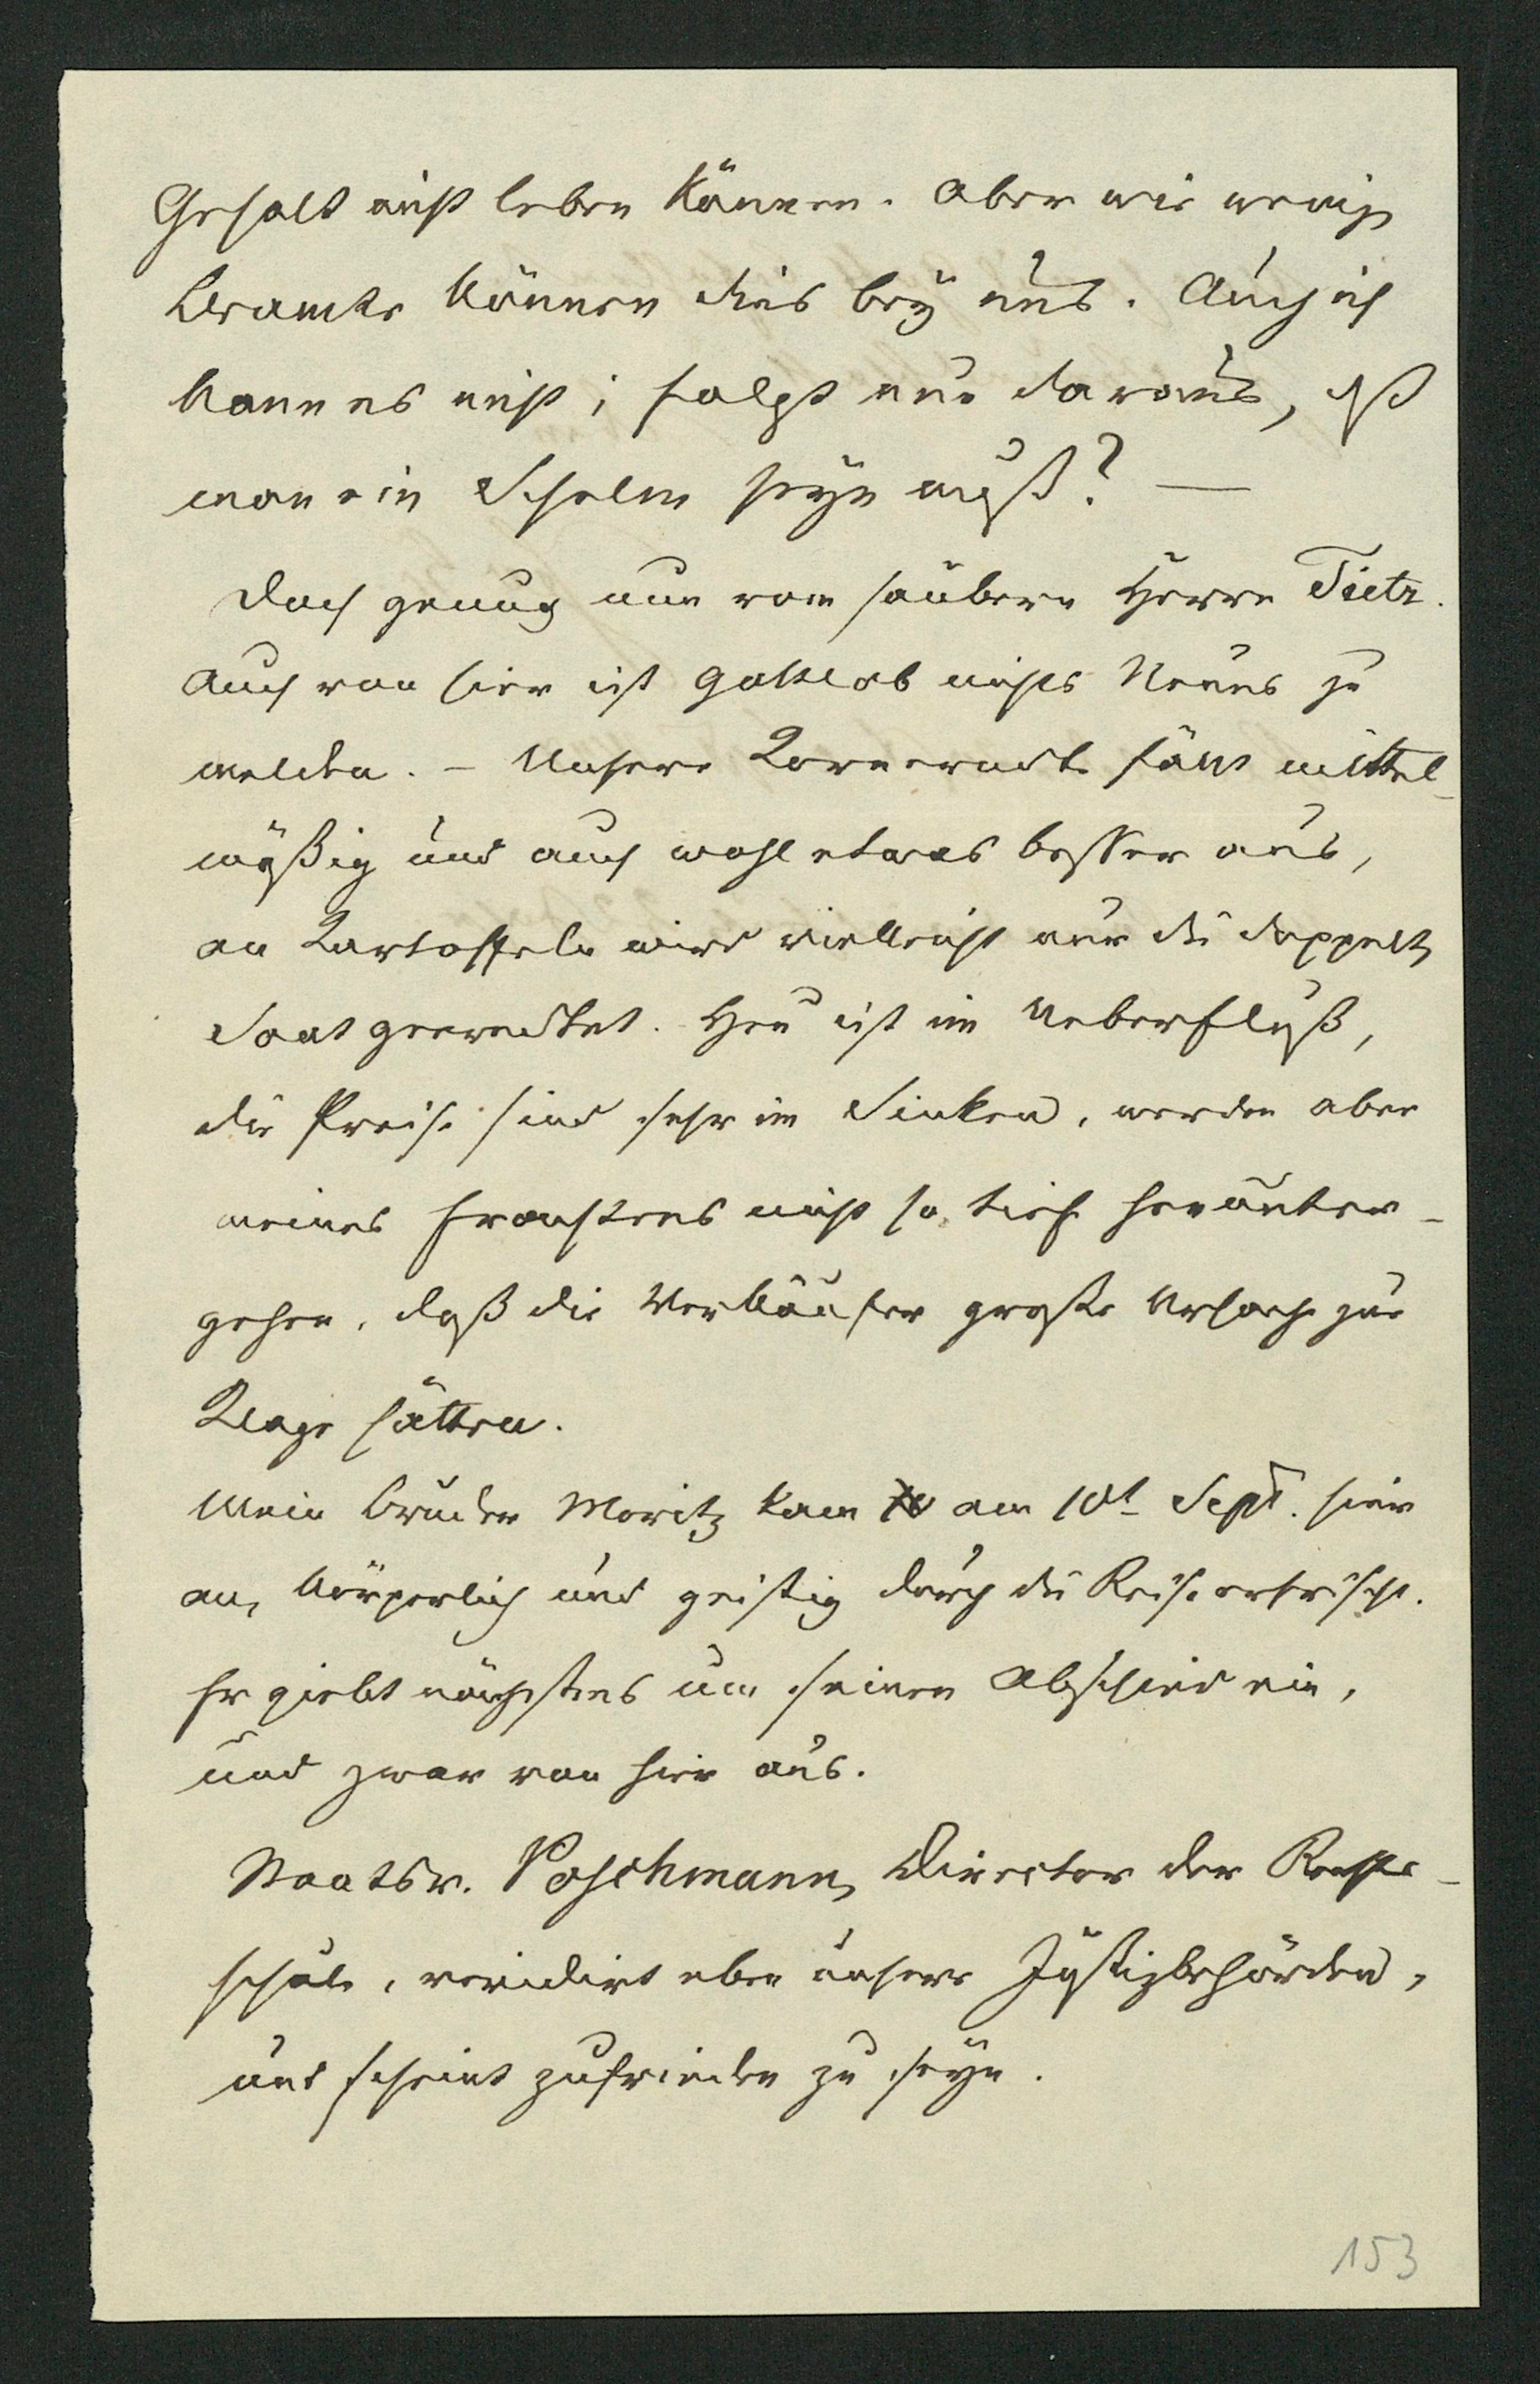 Gehalt nicht leben können. Aber wie wenige
Beamte können dies bey uns. Auch ich
kann es nicht; folgt nun daraus, daß
man ein Schelm seyn muß? —
Doch genug nun vom saubern Herrn Tietz.
Auch von hier ist gottlob nichts Neues zu
melden. – Unsere Kornerndte fällt mittel-
mäßig und auch wohl etwas besser aus,
an Kartoffeln wird vielleicht nur die doppelte
Saat geerndtet. Heu ist im Ueberfluß,
die Preise sind sehr im Sinken, werden aber
meines Erachtens nicht so tief herunter-
gehen, daß die Verkäufer große Ursache zur
Klage hätten.
Mein Bruder Moritz kam am 10t Sept. hier
an, körperlich und geistig durch die Reise erfrischt.
Er giebt nächstens um seinen Abschied ein,
und zwar von hier aus.
Staatsr. Poschmann, Director der Rechts-
schule, revidirt eben unsere Justizbehörden,
und scheint zufrieden zu seyn.
153